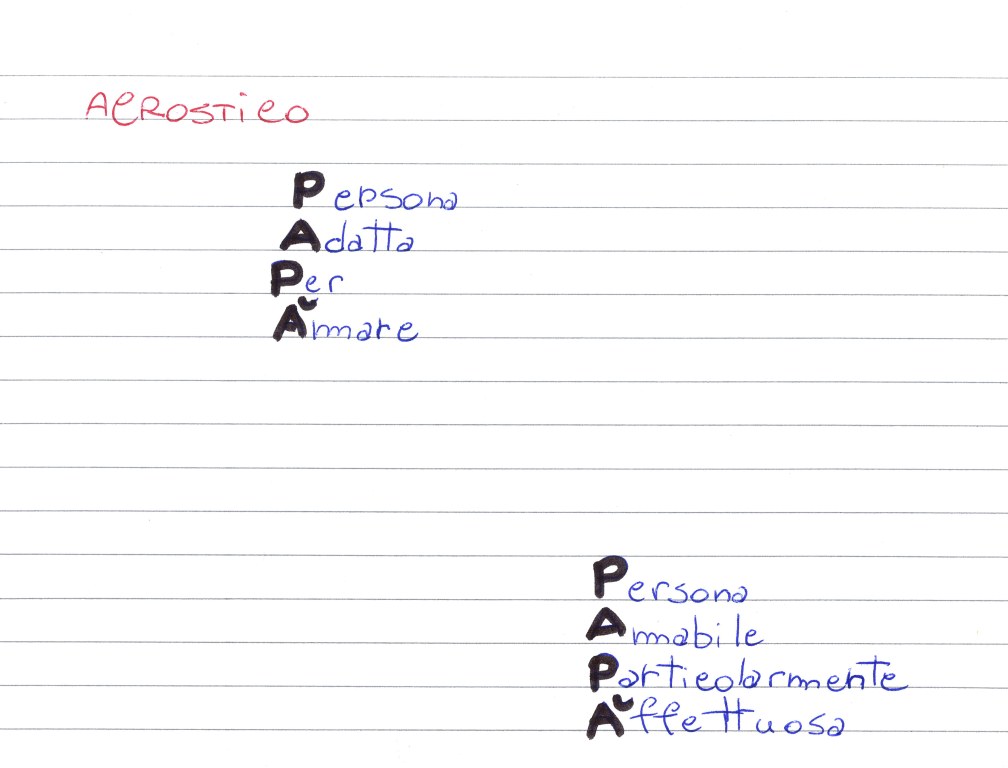 ACROSTICO
Persona
Adatta
Per
Àmare
Persona
Amabile
Particolarmente
Àffettuosa